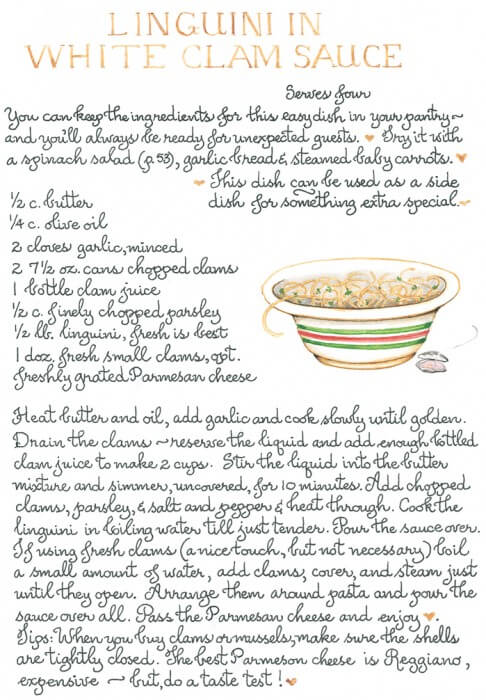 LINGUINI IN
WHITE CLAM SAUCE
Serves four
You can keep the ingredients for this easy dish in your pantry ~
and you'll always be ready for unexpected guests. ♥ Try it with
a spinach salad (p. 53), garlic bread & steamed baby carrots. ♥
♥ This dish can be used as a side
dish for something extra special. ♥
1/2 c. butter
1/4 c. olive oil
2 cloves garlic, minced
2 7 1/2 oz. cans chopped clams
1 bottle clam juice
1/2 c. finely chopped parsley
1/2 lb. linguini, fresh is best
1 doz. fresh small clams, opt.
freshly grated Parmesan cheese
Heat butter and oil, add garlic and cook slowly until golden.
Drain the clams ~ reserve the liquid and add enough bottled
clam juice to make 2 cups. Stir the liquid into the butter
mixture and simmer, uncovered, for 10 minutes. Add chopped
clams, parsley, & salt and pepper & heat through. Cook the
linguini in boiling water till just tender. Pour the sauce over.
If using fresh clams (a nice touch, but not necessary) boil
a small amount of water, add clams; cover, and steam just
until they open. Arrange them around pasta and pour the
sauce over all. Pass the Parmesan cheese and enjoy ♥.
Tips: When you buy clams or mussels, make sure the shells
are tightly closed. The best Parmeson cheese is Reggiano,
expensive ~ but, do a taste test! ♥